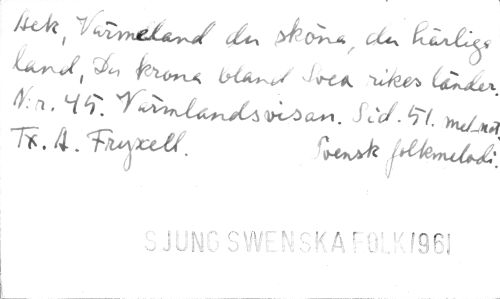 Ack, Värmeland du sköna, du härliga
land, Du krona bland Svea rikes länder.
N:r. 45. Värmlandsvisan. Sid. 51. mel. not.
Tx. A. Fryxell. Svensk folkmelodi.
SJUNG SWENSKA FOLK 1961